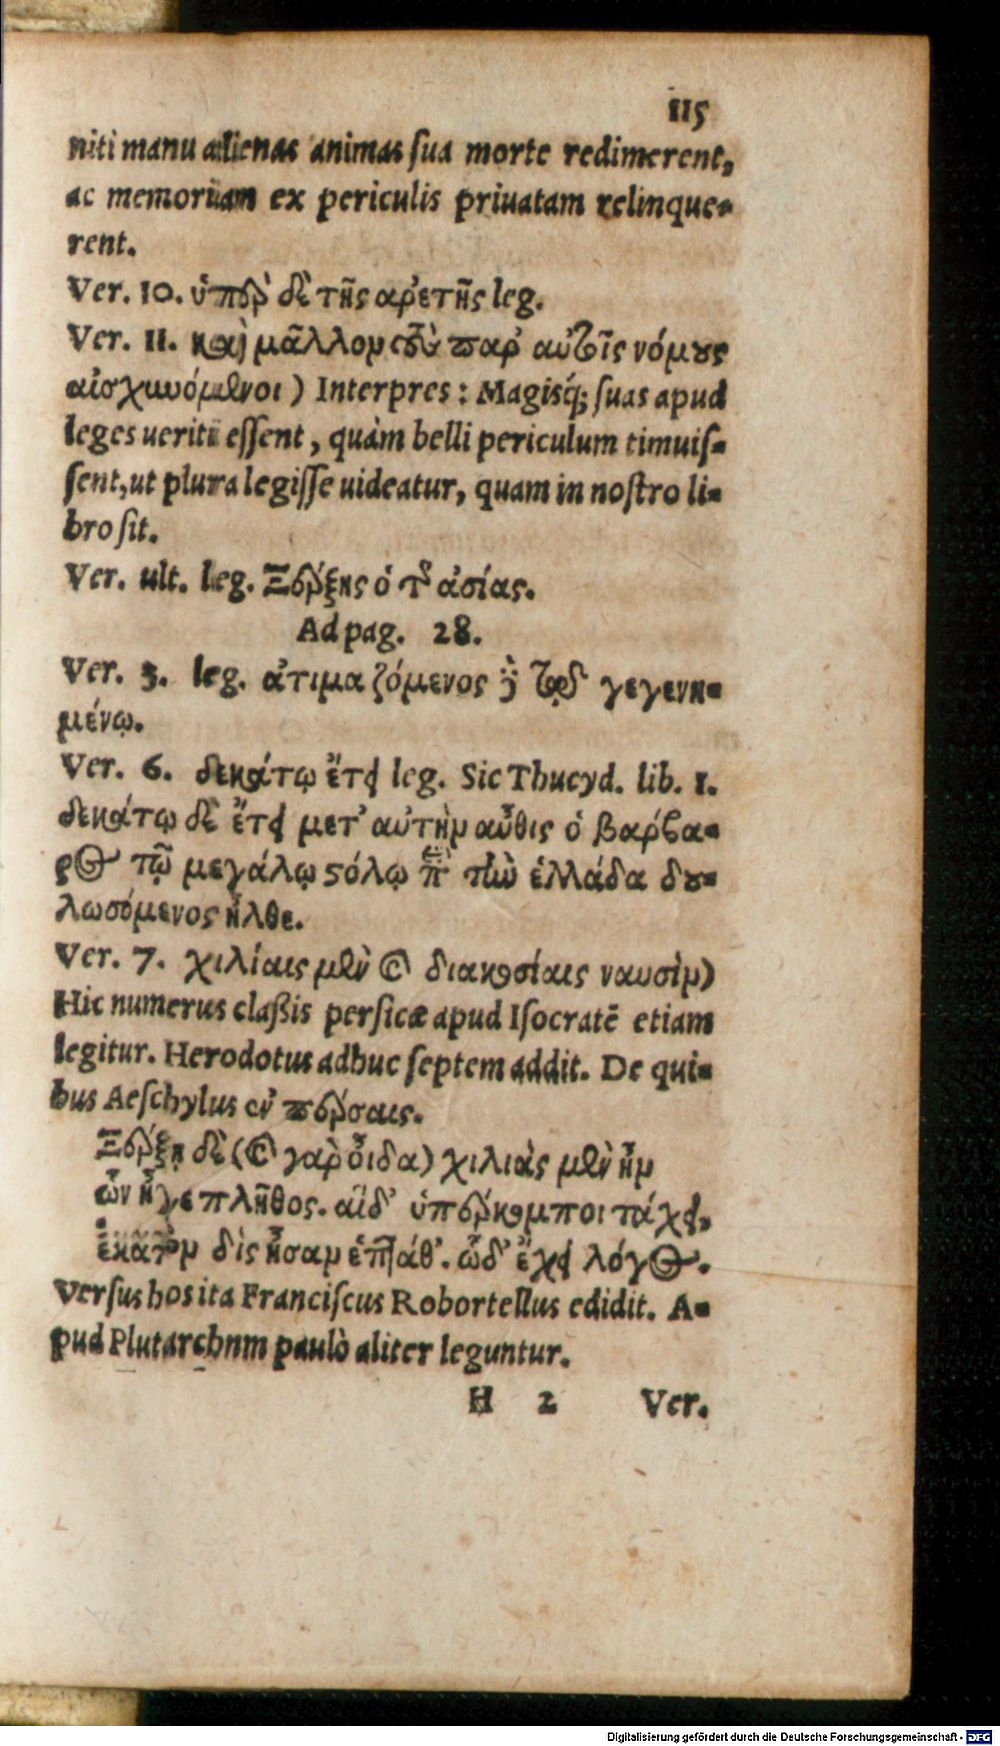 115
niti manu alienas animas sua morte redimerent,
ac memoriam ex periculis priuatam relinque-
rent.
Ver. 10. ὑπὲρ δὲ τῆς ἀρετῆς leg.
Ver. 11. καὶ μᾶλλον τοὺς παρ' αὐτοῖς νόμους
αἰσχυνόμενοι) Interpres: Magisq́; suas apud
leges ueriti essent, quàm belli periculum timuis-
sent, ut plura legisse uideatur, quam in nostro li-
bro sit.
Ver. ult. leg. Ξέρξης ὁ τῆς ἀσίας.
Ad pag. 28.
Ver. 3. leg. ἀτιμαζόμενος ἐπὶ τῷδε γεγενη-
μένῳ.
Ver. 6. δεκάτῳ ἔτει leg. Sic Thucyd. lib. 1.
δεκάτῳ δὲ ἔτει μετ' αὐτὴν αὖθις ὁ βάρβα-
ρος τῷ μεγάλῳ στόλῳ ἐπὶ τὴν ἑλλάδα δου-
λωσόμενος ἦλθε.
Ver. 7. χιλίαις μὲν καὶ διακοσίαις ναυσὶν)
Hic numerus claßis persicæ apud Isocratē etiam
legitur. Herodotus adhuc septem addit. De qui-
bus Aeschylus ἐν πέρσαις.
Ξέρξῃ δὲ (καὶ γὰρ οἶδα) χιλιὰς μὲν ἦν
ὧν ἦγε πλῆθος. αἵδ' ὑπέρκομποι τάχει,
ἑκατὸν δὶς ἦσαν ἑπτάθ'. ὧδ' ἔχει λόγος.
Versus hos ita Franciscus Robortellus edidit. A-
pud Plutarchnm paulò aliter leguntur.
H 2 Ver.
Digitalisierung gefördert durch die Deutsche Forschungsgemeinschaft - DFG